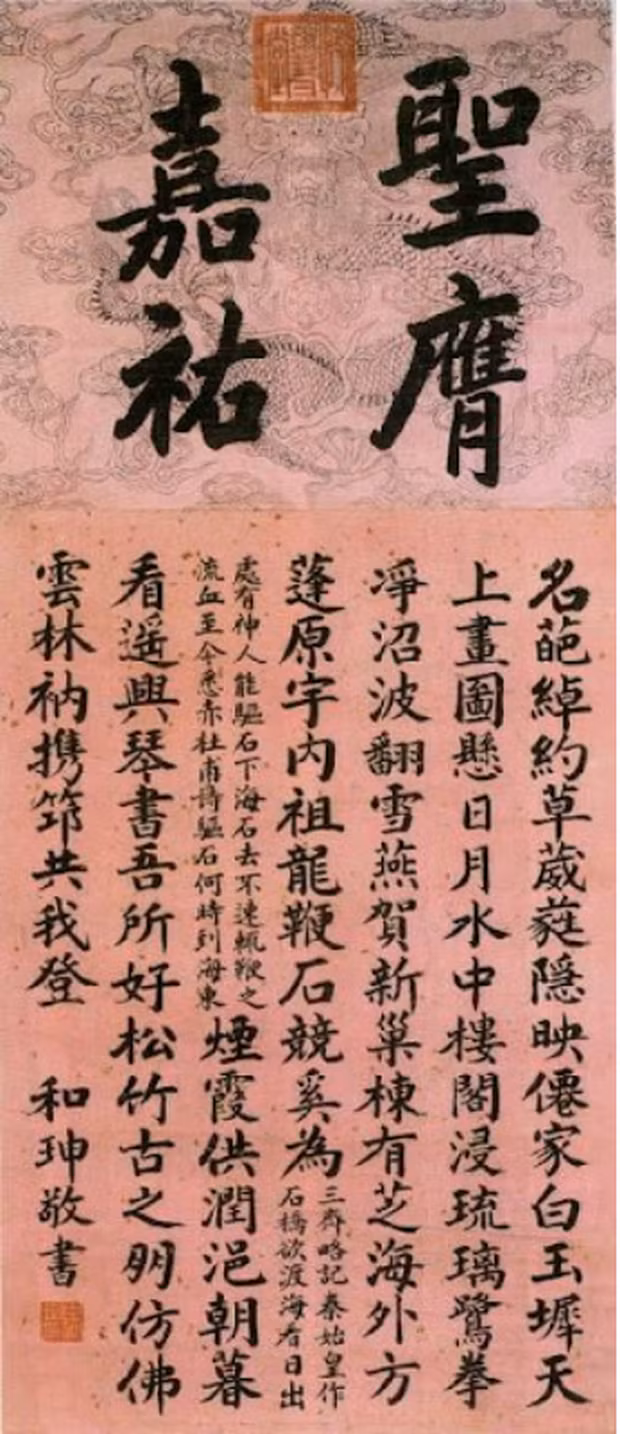 聖膺
嘉祐
名葩綽約草葳蕤隱映僊家白玉墀天
上畫圖懸日月水中樓閣浸琉璃鷺拳
凈沼波翻雪燕賀新巢棟有芝海外方
蓬原宇內祖龍鞭石競奚為
三齊略記秦始皇作
石橋欲渡海看日出
處有神人能驅石下海石去不速輒鞭之
流血至今悉赤杜甫詩驅石何時到海東
煙霞供潤浥朝暮
看遥興琴書吾所好松竹古之朋仿佛
雲林衲携筇共我登 和珅敬書